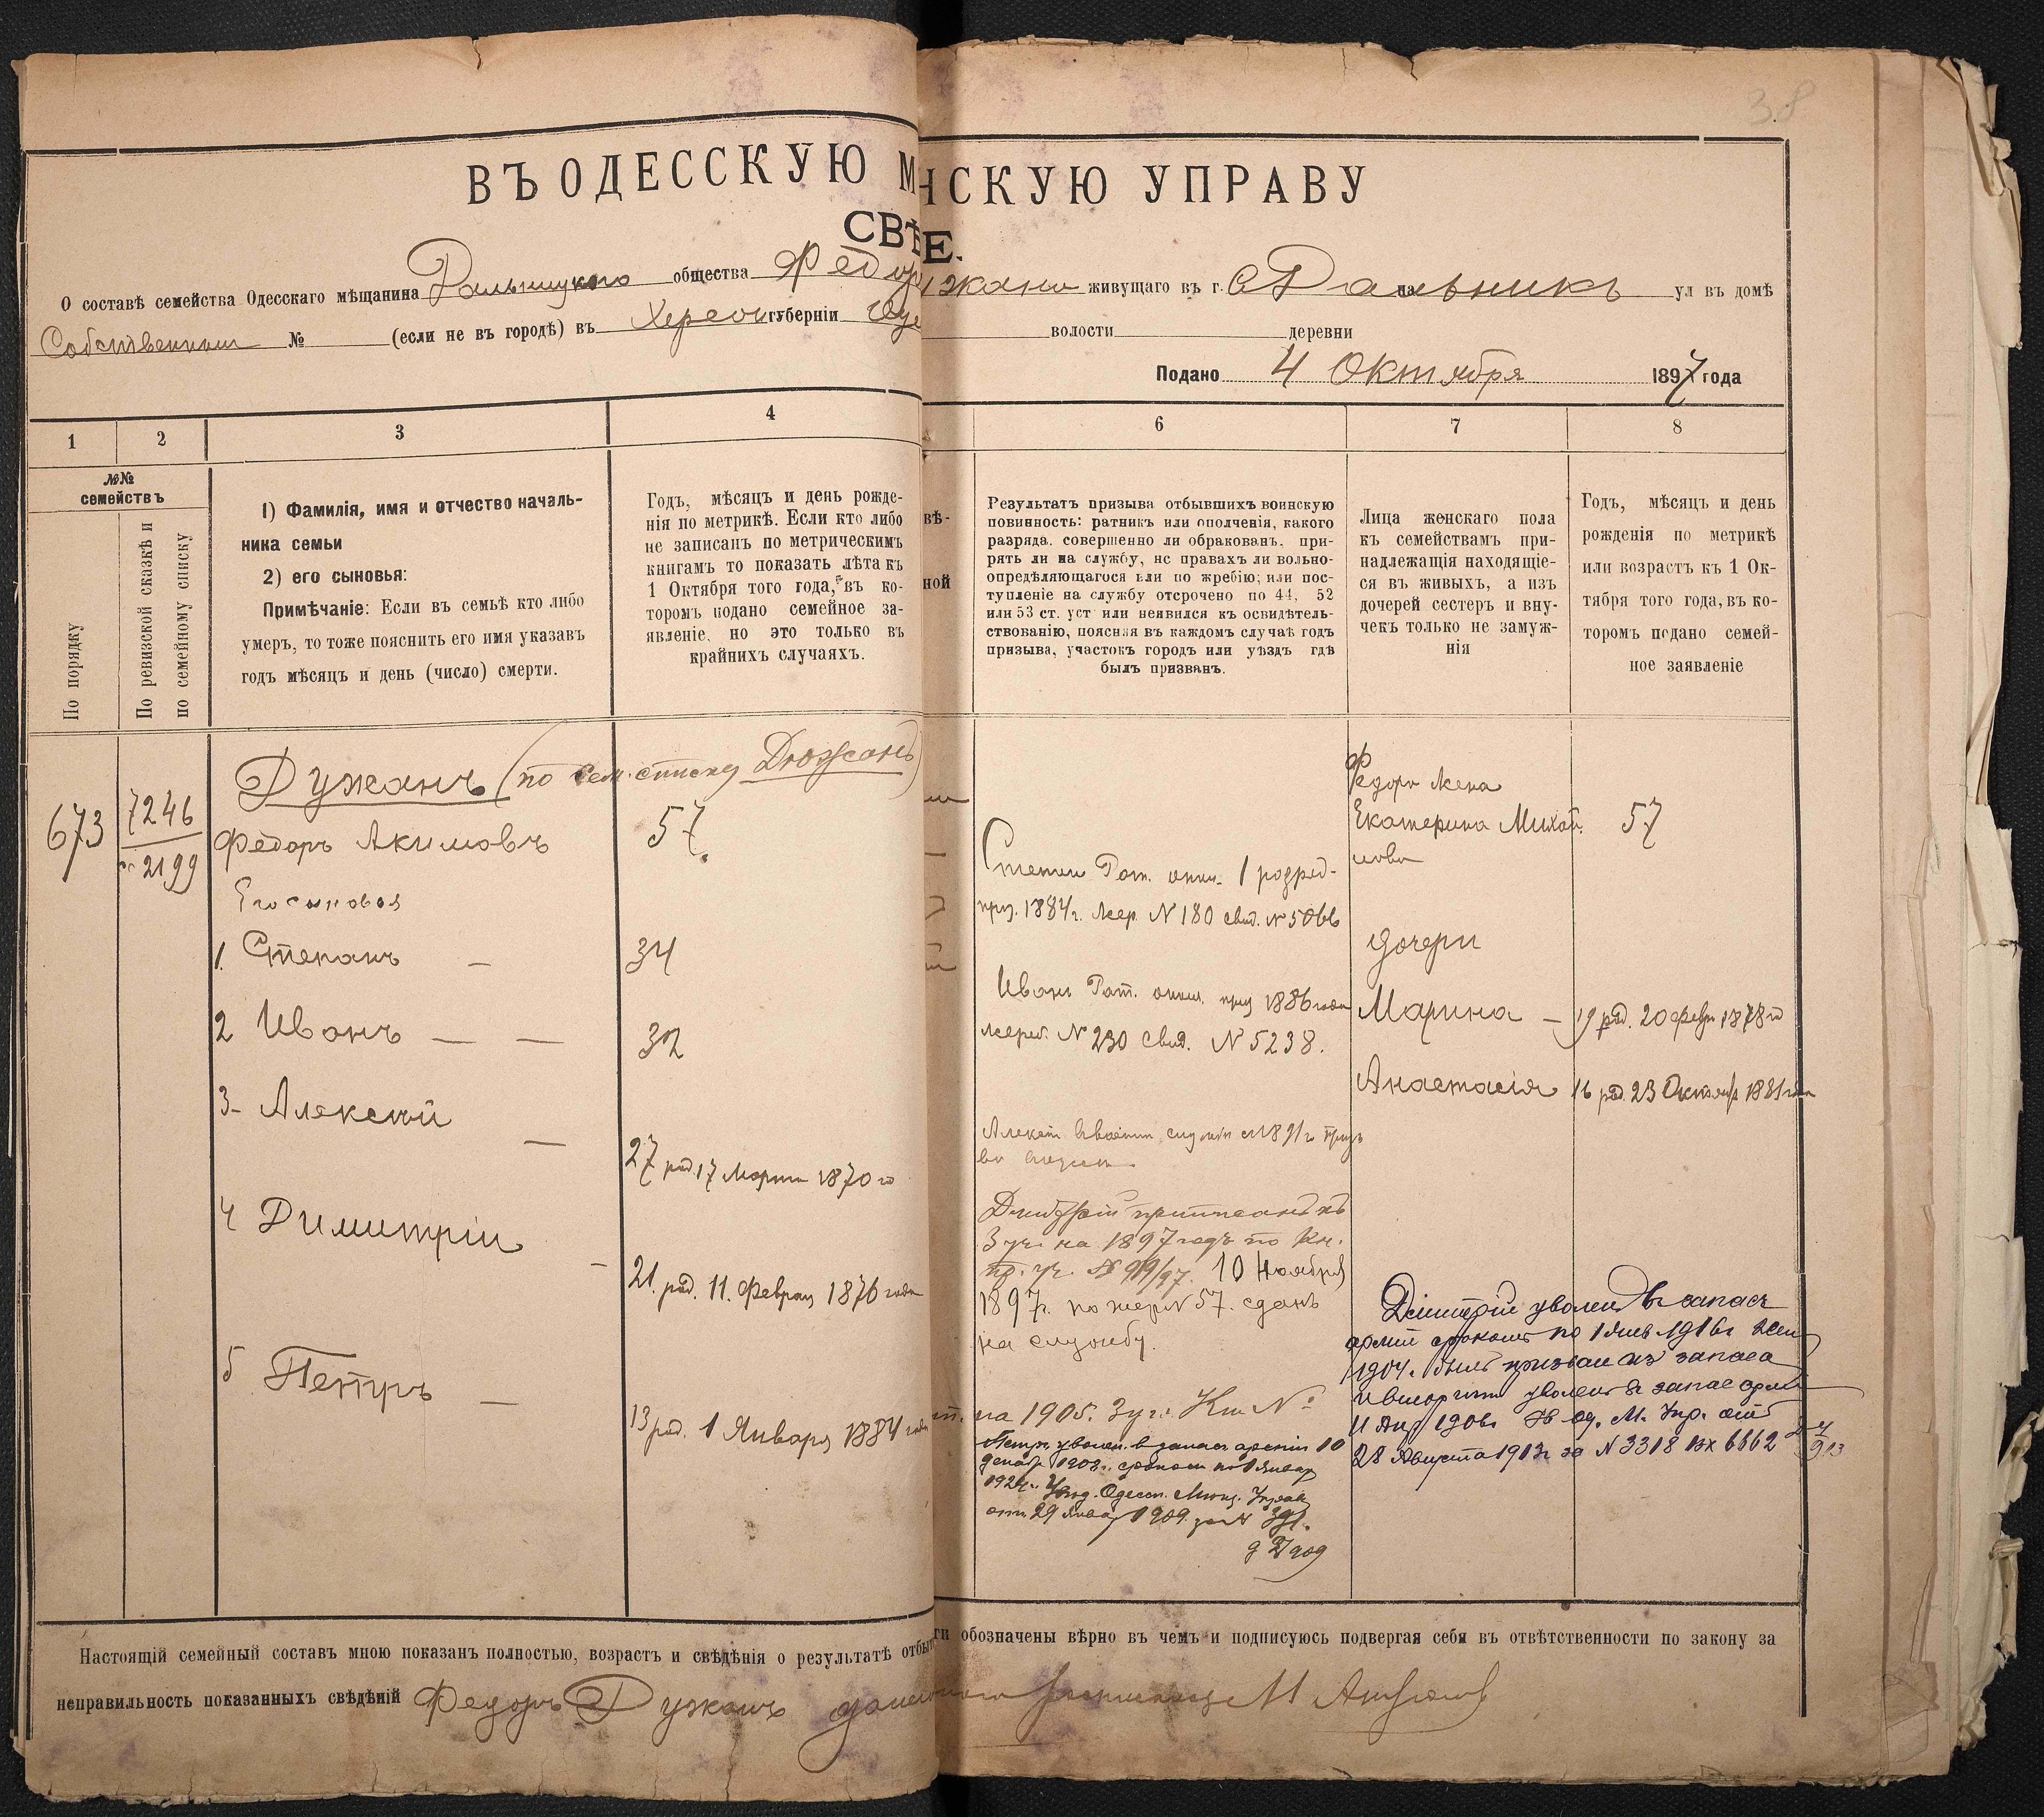 38
ВЪ ОДЕССКУЮ М
НСКУЮ УПРАВУ
СВѢ
Е.
О составѣ семейства Одесскаго мѣщанина Дальницкаго общества Федор
жана живущаго въ г. С Дальникъ на ул въ домѣ
Собственном № (если не въ городѣ) въ Херсон губерніи Оде
волости деревни
Подано 4 Октября 1897 года
1 2 3 4 6 7 8
№№ семействъ
По порядку
По ревизской сказкѣ и
по семейному списку
1) Фамилія, имя и отчество началь-
ника семьи
2) его сыновья:
Примѣчаніе: Если въ семьѣ кто либо
умеръ, то тоже пояснить его имя указавъ
годъ мѣсяцъ и день (число) смерти.
Годъ, мѣсяцъ и день рожде-
нія по метрикѣ. Если кто либо
не записанъ по метрическимъ
книгамъ то показать лѣта къ
1 Октября того года, въ ко-
торомъ подано семейное за-
явленіе, но это только въ
крайнихъ случаяхъ.
вѣ-
ной
Результатъ призыва отбывшихъ воинскую
повинность: ратникъ или ополченія, какого
разряда. совершенно ли обракованъ, при-
рять ли на службу, нс правахъ ли вольно-
опредѣляющагося или по жребію; или пос-
тупленіе на службу отсрочено по 44, 52
или 53 ст. уст или неявился къ освидѣтель-
ствованію, поясняя въ каждомъ случаѣ годъ
призыва, участокъ городъ или уѣздъ гдѣ
былъ призванъ.
Лица женскаго пола
къ семействамъ при-
надлежащія находящіе-
ся въ живыхъ, а изъ
дочерей сестеръ и вну-
чекъ только не замуж-
нія
Годъ, мѣсяцъ и день
рожденія по метрикѣ
или возрастъ къ 1 Ок-
тября того года, въ ко-
торомъ подано семей-
ное заявленіе
673
7246
2199
Дужанъ (по сем. списку Дюжанъ)
Федоръ Акимовъ 57.
Его сыновья
1. Степанъ — 34
2 Иванъ — — 32
3- Алексѣй —
27 род. 17 Марта 1870 го
4 Димитріи —
21. род. 11. Феврал 1876 года
5 Петръ —
13 род. 1 Января 1884 года
Степан Рат. опол. 1 розряд-
приз. 1884 г. жер. N 180 свид. N 5066
Иван Рат. опол. приз 1886 года
жереб. N 230 свид. N 5238.
Алексѣй в военн службе с 1891 го призы
Дмитрій приписанъ къ
3 уч. на 1897 годъ по Кн.
пр. уч. № 919/97. 10 Ноября
1897 г. по жер N 57. сданъ
на службу.
на 1905. 3 уч. Кн №
Петръ уволен. в запас арміи 10
декаб. 1908 г. сроком по 1 Январ
1924 г. Увед. Одесск. Мѣщ. Управ
отъ 29 Январ 1909. за N 391.
д 2/1909
Федора жена
Екатерина Михай 57
лова
дочери
Марина — 19 род. 20 февр 1878 го
Анастасія 16 род. 23 Октября 1881 года
Дмитрій уволен въ запас
арміи сроком по 1 Янв 1916 г
1904 г. былъ призван из запаса
и вторично уволенъ в запас арміи
11 Апр 1906 г. Ув од. М. Упр. отъ
28 Августа 1913 г за N 3318 Вх 6662
913
Настоящій семейный составъ мною показанъ полностью, возрастъ и свѣдѣнія о результатѣ отбыт
ги обозначены вѣрно въ чемъ и подписуюсь подвергая себя въ отвѣтственности по закону за
неправильность показанныхъ свѣдѣній Федоръ Дужанъ